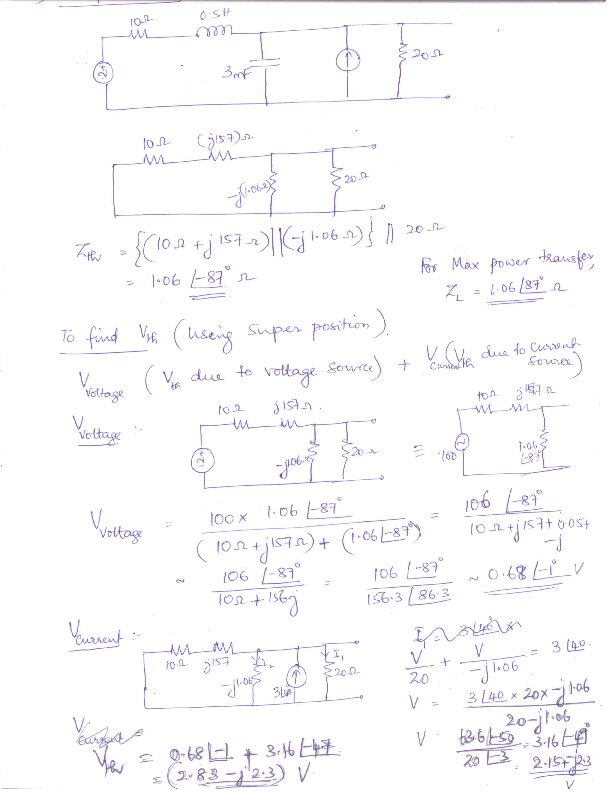 10Ω 0.5H
3mF 20Ω
10Ω (j157)Ω
-j(1.06Ω) 20Ω
Zth = {(10Ω + j157Ω) || (-j1.06Ω)} || 20Ω
= 1.06 ∠-87° Ω
For Max power transfer,
ZL = 1.06 ∠87° Ω
To find Vth (using Super position).
Vvoltage (Vth due to voltage source) + Vcurrent (Vth due to current source)
Vvoltage :-
10Ω j157Ω.
-j1.06Ω 20Ω
≡
10Ω j157Ω
100 1.06 ∠-87°
Vvoltage = 100 x 1.06 ∠-87° / (10Ω + j157Ω) + (1.06 ∠-87°) = 106 ∠-87° / 10Ω + j157 + 0.05 + -j
~ 106 ∠-87° / 10Ω + 156j = 106 ∠-87° / 156.3 ∠86.3 ~ 0.68 ∠-1° V
Vcurrent :-
10Ω j157 -j1.06 I1 20Ω
V/20 + V/-j1.06 = 3 ∠40.
V = 3 ∠40 x 20 x -j1.06 / 20 - j1.06
V = 63.6 ∠-50 / 20 ∠-3 = 3.16 ∠-47°
= 2.15 - j2.3 V
Vth = 0.68 ∠-1 + 3.16 ∠-47
= (2.83 - j2.3) V